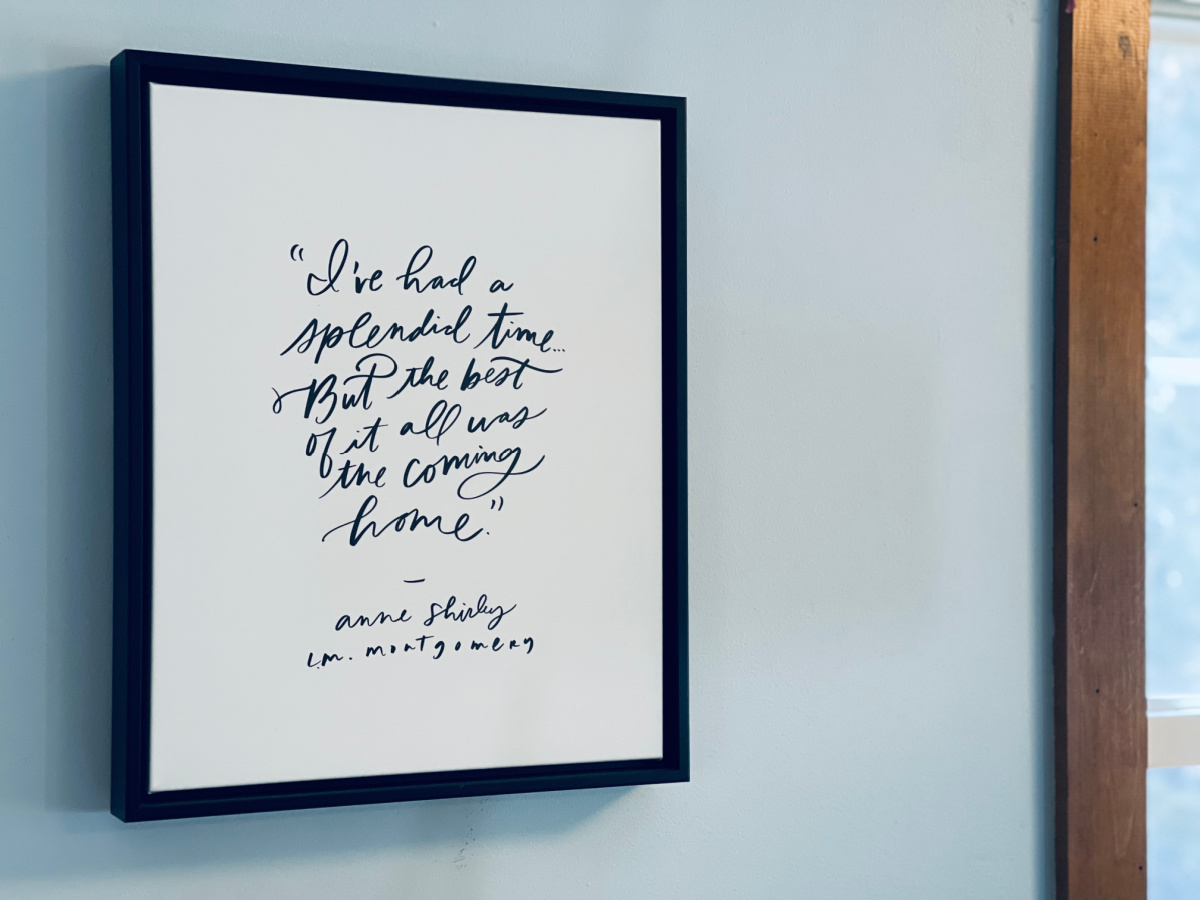 "I've had a
splendid time...
But the best
of it all was
the coming
home."
—
anne shirley
L.M. montgomery